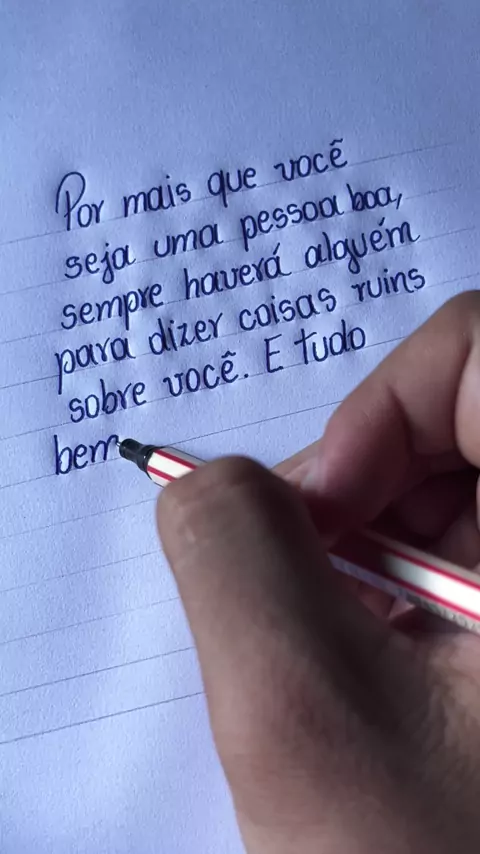 Por mais que você
seja uma pessoa boa,
sempre haverá alguém
para dizer coisas ruins
sobre você. E tudo
bem